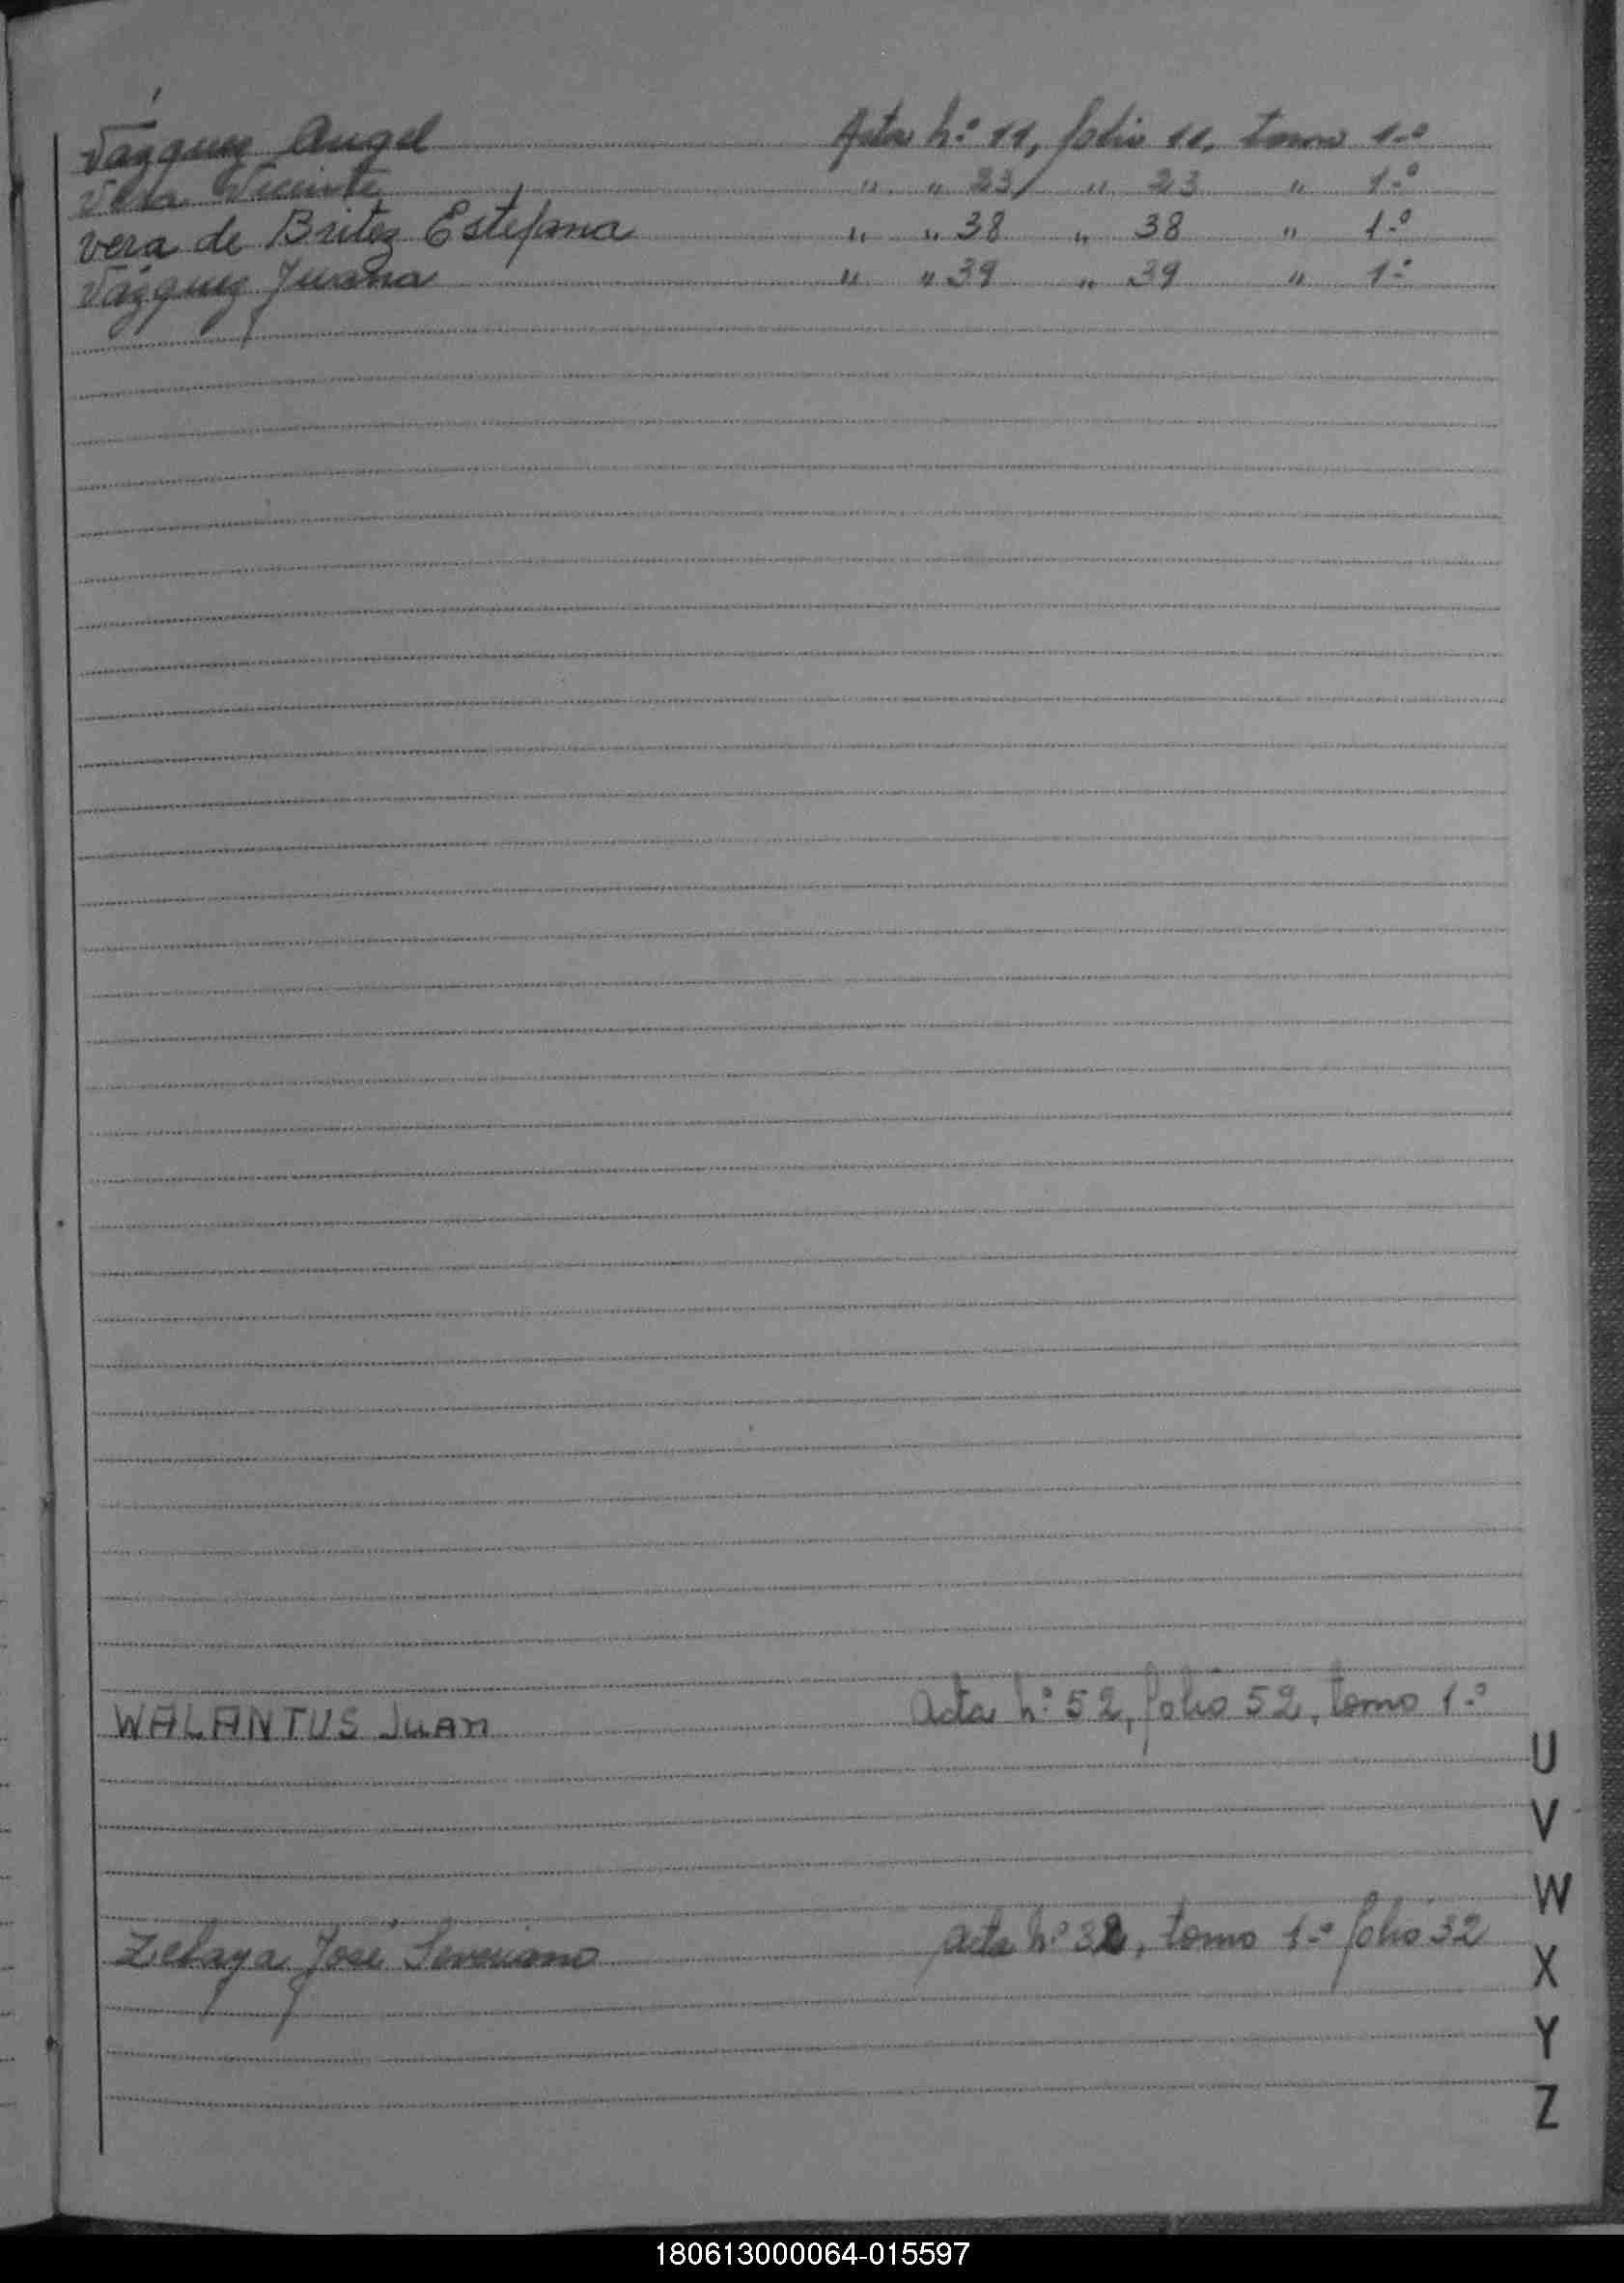 Vázquez Angel Acta n.º 11, folio 11, tomo 1.º
Vera Vicente " " 23, " 23 " 1.º
Vera de Britez Estefana " " 38 " 38 " 1.º
Vázquez Juana " " 39 " 39 " 1.º
WALANTUS Juan Acta n.º 52, folio 52, tomo 1.º
U
V
W
Zelaya José Severiano acta n.º 32, tomo 1.º folio 32
X
Y
Z
180613000064-015597